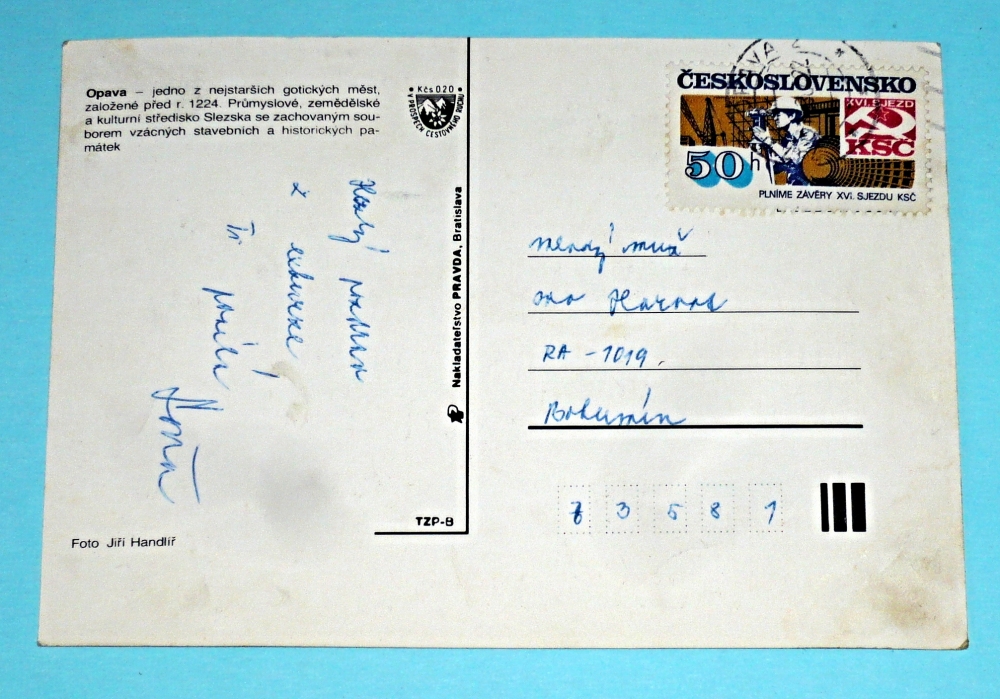 Opava – jedno z nejstarších gotických měst,
založené před r. 1224. Průmyslové, zemědělské
a kulturní středisko Slezska se zachovaným sou-
borem vzácných stavebních a historických pa-
mátek
Kčs 0.20
V PROSPĚCH CESTOVNÉHO RUCHU
Hezký pozdrav
z exkurze
Ti posílá
Nakladateľstvo PRAVDA, Bratislava
TZP-8
Foto Jiří Handlíř
ČESKOSLOVENSKO
XVI. SJEZD
KSČ
50 h
PLNÍME ZÁVĚRY XVI. SJEZDU KSČ
mladý muž
RA - 1019.
Bohumín
7 3 5 8 1